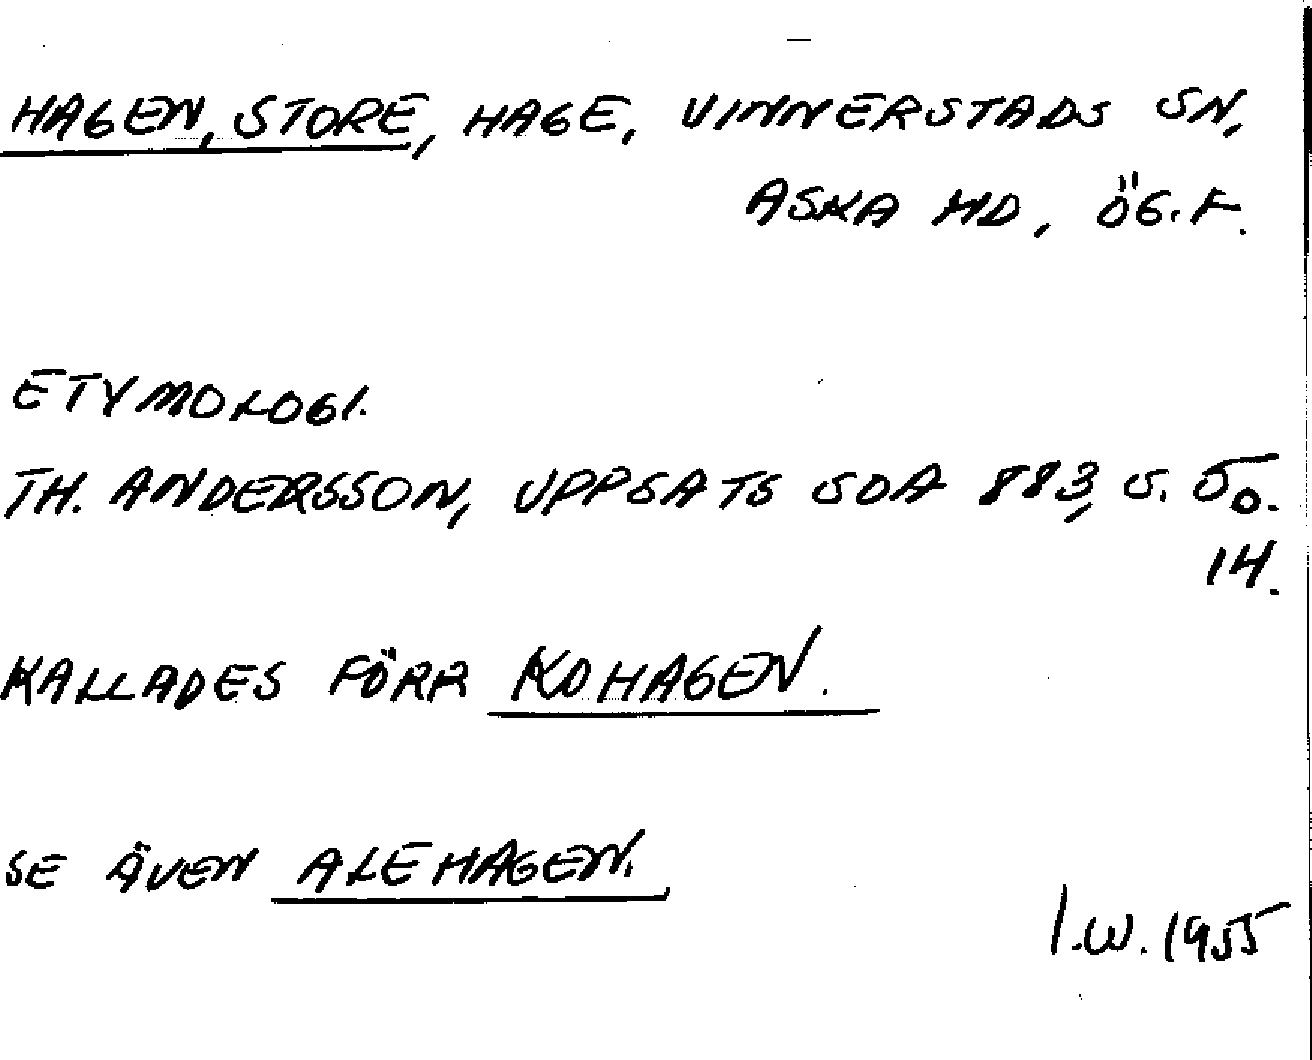 HAGEN, STORE, HAGE, VINNERSTADS SN,
ASKA HD, ÖG. F.
ETYMOLOGI.
TH. ANDERSSON, UPPSATS SOA 883, S. 50.
14.
KALLADES FÖRR KOHAGEN.
SE ÄVEN ALEHAGEN.
I.W. 1955